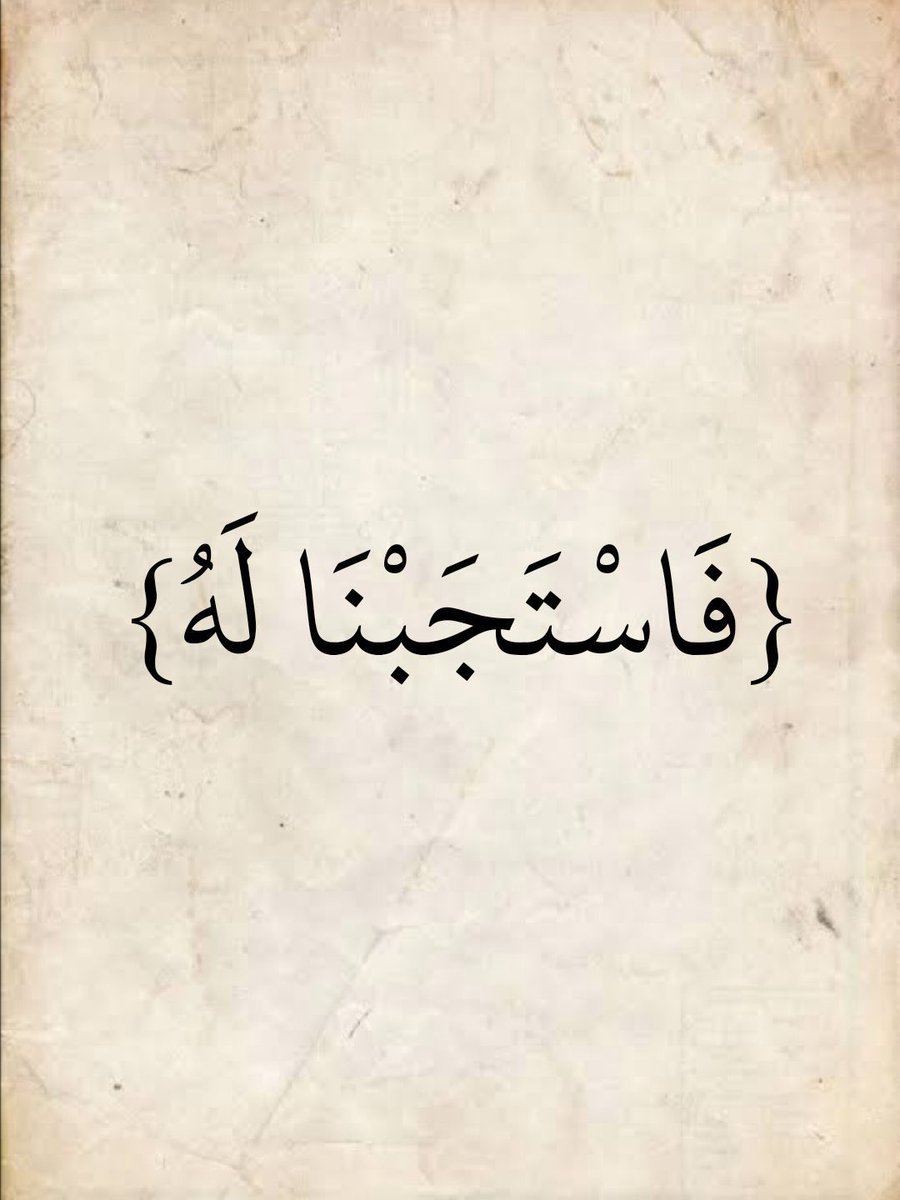 {فَاسْتَجَبْنَا لَهُ}